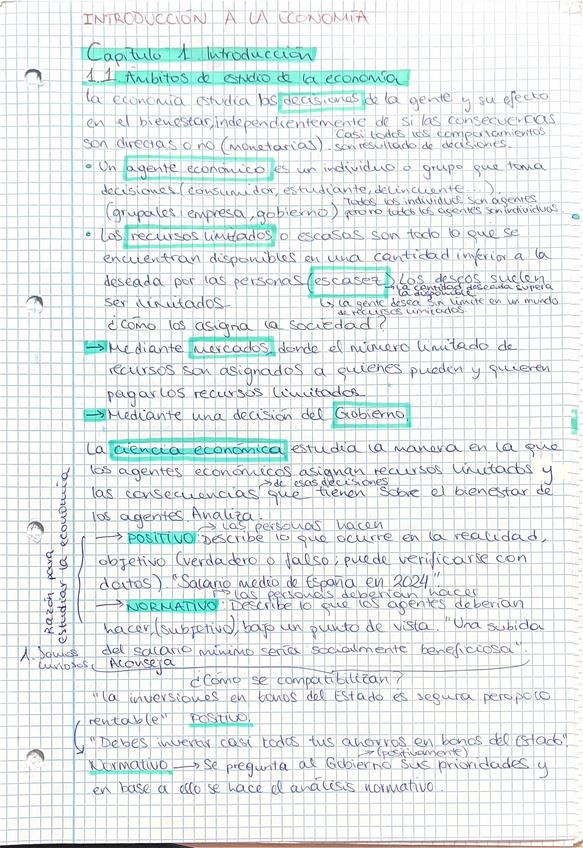 INTRODUCCIÓN A LA ECONOMÍA
Capítulo 1. Introducción
1.1. Ámbitos de estudio de la economía
La economía estudia las decisiones de la gente y su efecto
en el bienestar, independientemente de si las consecuencias
son directas o no (monetarias). Casi todos los comportamientos
son resultado de decisiones.
• Un agente económico es un individuo o grupo que toma
decisiones (consumidor, estudiante, delincuente...),
(grupales: empresa, gobierno) Todos los individuos son agentes
pero no todos los agentes son individuos.
• Los recursos limitados o escasos son todo lo que se
encuentran disponibles en una cantidad inferior a la
deseada por las personas (escasez). Los deseos suelen
→ la cantidad deseada supera
la disponible
ser ilimitados. ↳ la gente desea sin límite en un mundo
de recursos limitados.
¿Cómo los asigna la sociedad?
→ Mediante mercados, donde el número limitado de
recursos son asignados a quienes pueden y quieren
pagar los recursos limitados.
→ Mediante una decisión del Gobierno.
La ciencia económica estudia la manera en la que
los agentes económicos asignan recursos limitados y
→ de esas decisiones
las consecuencias que tienen sobre el bienestar de
los agentes. Analiza:
→ las personas hacen
→ POSITIVO: Describe lo que ocurre en la realidad,
objetivo (verdadero o falso; puede verificarse con
datos) "Salario medio de España en 2024"
→ las personas deberían hacer
→ NORMATIVO: Describe lo que los agentes deberían
hacer, (subjetivo), bajo un punto de vista. "Una subida
del salario mínimo sería socialmente beneficiosa".
Aconseja
Razón para
estudiar la economía
1. Somos
curiosos
¿Cómo se compatibilizan?
"La inversiones en bonos del Estado es segura pero poco
rentable" POSITIVO.
"Debes invertir casi todos tus ahorros en bonos del Estado"
→ (positivamente)
Normativo → Se pregunta al Gobierno sus prioridades y
en base a ello se hace el análisis normativo.